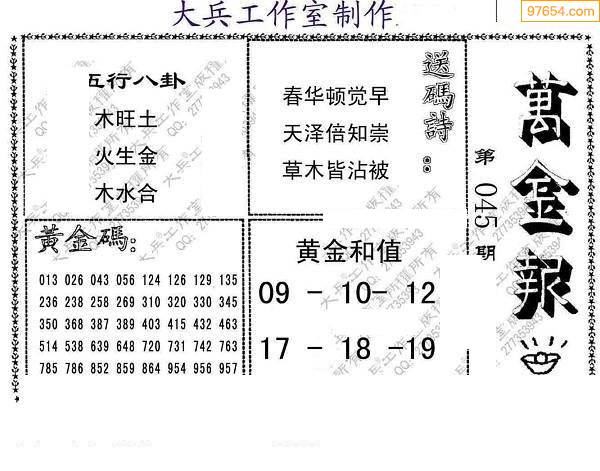 大兵工作室制作
97654.com
五行八卦
木旺土
火生金
木水合
送碼詩:
春华顿觉早
天泽倍知崇
草木皆沾被
萬金報
第045期
黃金碼:
013 026 043 056 124 126 129 135
236 238 258 269 310 320 330 345
350 368 387 389 403 415 432 463
514 538 639 648 720 731 742 763
785 786 852 859 864 954 956 957
黄金和值
09 - 10- 12
17 - 18 -19